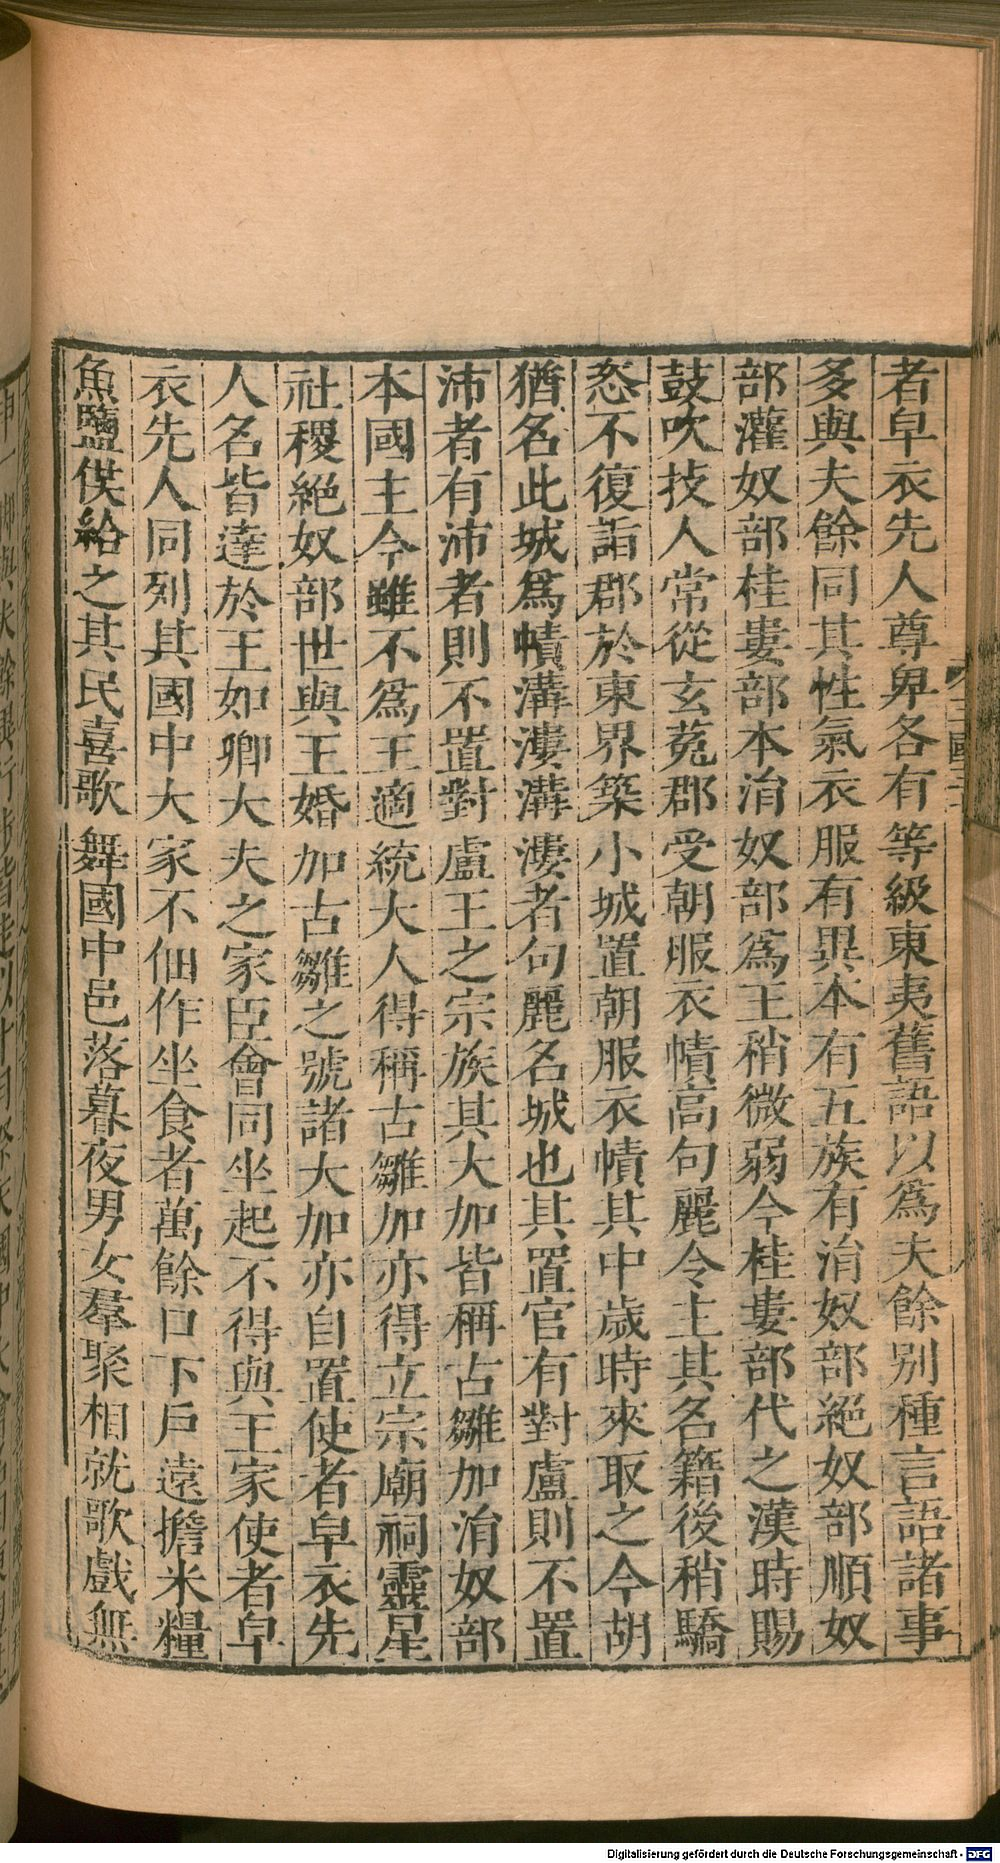 者皁衣先人尊卑各有等級東夷舊語以爲夫餘別種言語諸事
多與夫餘同其性氣衣服有異本有五族有消奴部絕奴部順奴
部灌奴部桂婁部本消奴部爲王稍微弱今桂婁部代之漢時賜
鼓吹技人常從玄菟郡受朝服衣幘高句麗令主其名籍後稍驕
恣不復詣郡於東界築小城置朝服衣幘其中歲時來取之今胡
猶名此城爲幘溝漊溝漊者句麗名城也其置官有對盧則不置
沛者有沛者則不置對盧王之宗族其大加皆稱古雛加消奴部
本國主今雖不爲王適統大人得稱古雛加亦得立宗廟祠靈星
社稷絕奴部世與王婚加古雛之號諸大加亦自置使者皁衣先
人名皆達於王如卿大夫之家臣會同坐起不得與王家使者皁
衣先人同列其國中大家不佃作坐食者萬餘口下戶遠擔米糧
魚鹽供給之其民喜歌舞國中邑落暮夜男女羣聚相就歌戲無
Digitalisierung gefördert durch die Deutsche Forschungsgemeinschaft - DFG